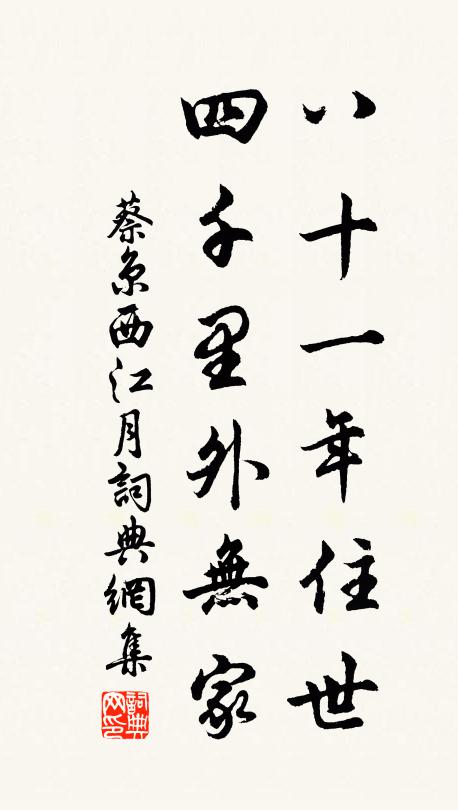 八十一年住世
四千里外無家
蔡京西江月詞典網集
詞典网印